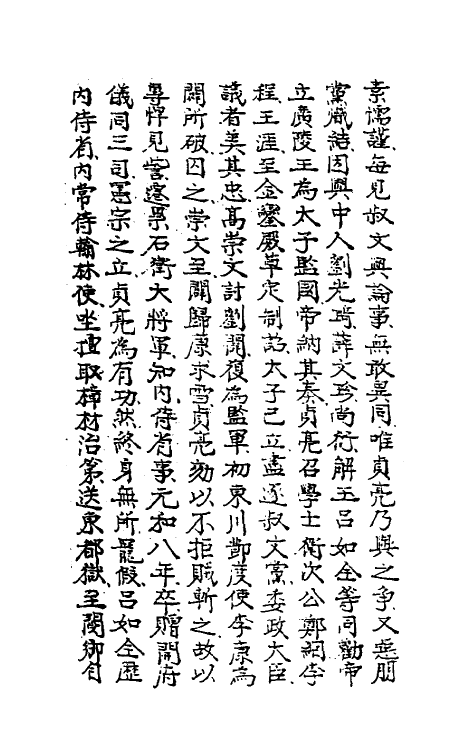 素懦謹每見叔文與論事無敢異同唯貞亮乃與之爭又惡朋
黨熾結因與中人劉光琦薛文珍尚衍解玉呂如全等同勸帝
立廣陵王為太子監國帝納其奏貞亮召學士衛次公鄭絪李
程王涯至金鑾殿草定制詔太子已立盡逐叔文黨委政大臣
議者美其忠高崇文討劉闢復為監軍初東川節度使李康為
闢所破囚之崇文至闢歸康求雪貞亮劾以不拒賊斬之故以
專悍見訾遷累右衛大將軍知內侍省事元和八年卒贈開府
儀同三司憲宗之立貞亮為有功然終身無所寵假呂如全歷
內侍省內常侍翰林使坐擅取樟材治第送東都獄至閿鄉自